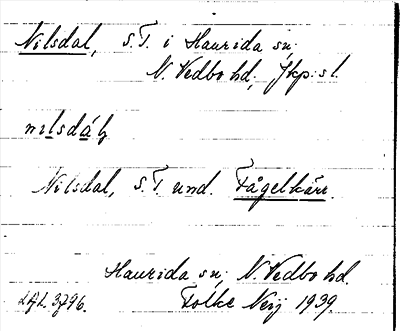 Nilsdal, S.T. i Haurida sn;
N. Vedbo hd; Jkp:s l.
nilsdál
Nilsdal, S.T. und. Fågelkärr.
Haurida sn; N. Vedbo hd.
Folke Neij 1939.